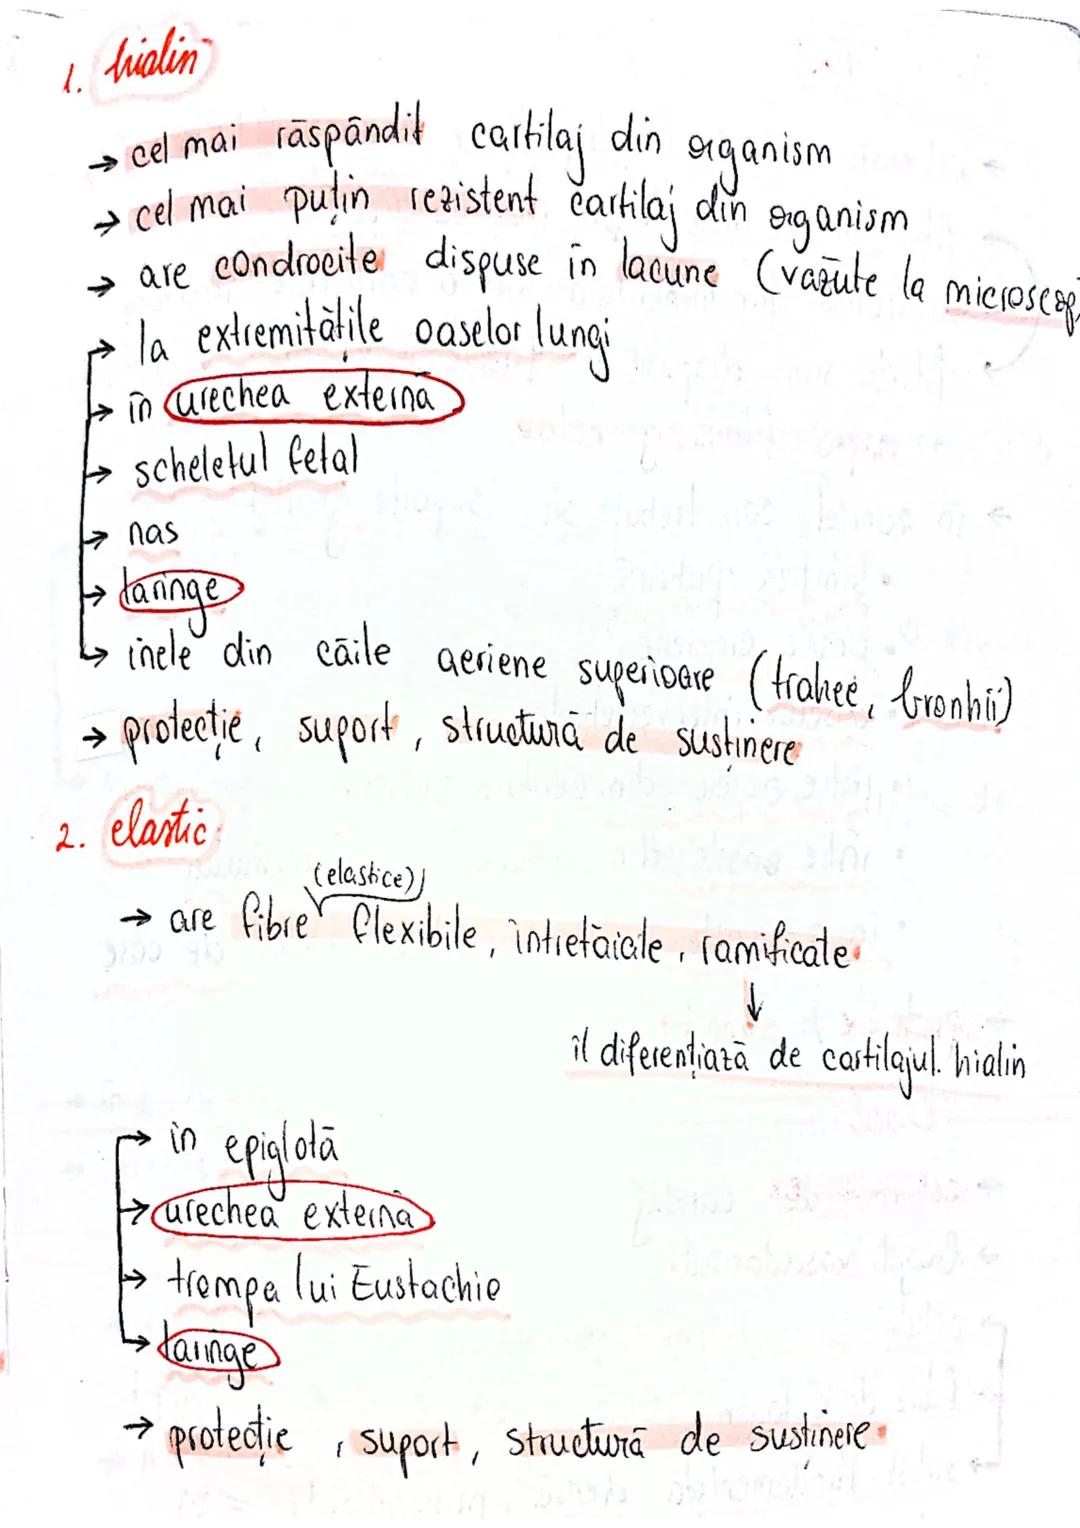 1. hialin
→ cel mai răspândit cartilaj din organism
→ cel mai puțin rezistent cartilaj din organism
→ are condrocite dispuse în lacune (văzute la microscop)
→ la extremitățile oaselor lungi
→ în urechea externă
→ scheletul fetal
→ nas
→ laringe
→ inele din căile aeriene superioare (trahee, bronhii)
→ protecție, suport, structură de susținere
2. elastic
(elastice)
→ are fibre flexibile, întretăiate, ramificate
↓
îl diferențiază de cartilajul hialin
→ în epiglotă
→ urechea externă
→ trompa lui Eustachio
→ laringe
→ protecție, suport, structură de susținere